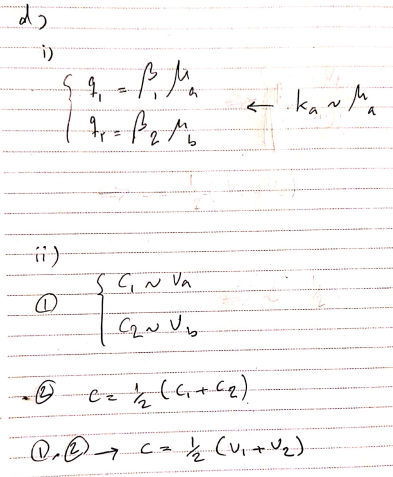 d)
i)
q₁ = β₁ μₐ
qᵣ = β₂ μ_b ← kₐ ~ μₐ
ii)
① { C₁ ~ Vₐ
C₂ ~ V_b
② C = ½ (C₁ + C₂)
①,② → C = ½ (V₁ + V₂)